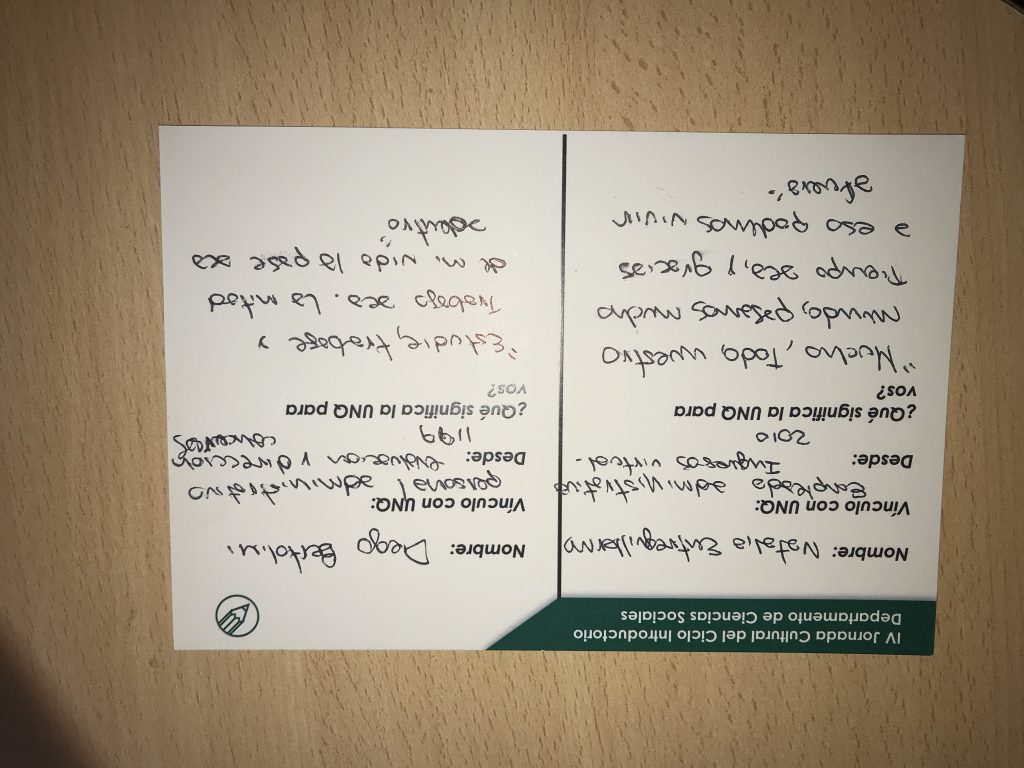 IV Jornada Cultural del Ciclo Introductorio
Departamento de Ciencias Sociales
Nombre: Natalia
Vínculo con UNQ:
Empleada administrativa
Ingresos virtual.
Desde:
2010
¿Qué significa la UNQ para
vos?
"Mucho, Todo, nuestro
mundo, pasamos mucho
Tiempo aca, y gracias
a eso podemos vivir
afuera".
Nombre: Diego Bertolini
Vínculo con UNQ:
personal administrativo
Desde: evaluacion y direccion
1199 concursos
¿Qué significa la UNQ para
vos?
"Estudie, trabaje y
Trabajo aca. La mitad
de mi vida la pase aca
adentro"